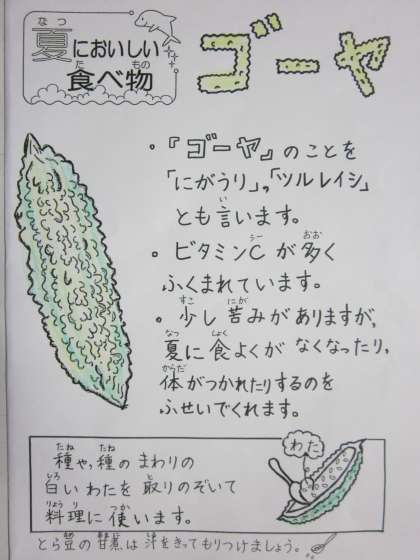 夏においしい
食べ物
ゴーヤ
・『ゴーヤ』のことを
「にがうり」,「ツルレイシ」
とも言います。
・ビタミンCが多く
ふくまれています。
・少し苦みがありますが,
夏に食よくがなくなったり,
体がつかれたりするのを
ふせいでくれます。
わた
種や,種のまわりの
白いわたを取りのぞいて
料理に使います。
とら豆の甘煮は汁をきってもりつけましょう。